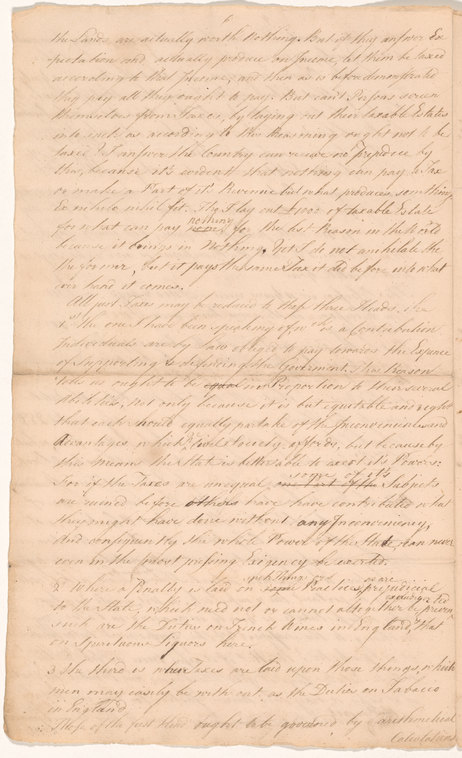 6
the Lands are actually worth Nothing. But if they answer Ex
pectation and actually produce an Income, let them be taxed
according to that Income, and then as is before demonstrated
they pay all they ought to pay. But can't Persons screen
themselves from Taxes, by laying out their taxable Estates
into such as according to this Reasoning ought not to be
taxed? I answer the Country can receive no Prejudice by
this, because it's evident that nothing can pay a Tax
or make a Part of it's Revenue but what produces something
Ex nihilo nihil fit. If I lay out £1000 of taxable Estate
for what can pay nothing, for the best Reason in the World
because it brings in Nothing. Yet I do not annihilate the
the former, but it pays the same Tax it did before into what
ever hand it comes.
All just Taxes may be reduced to these three Heads,
1st the one I have been speaking of, wch is a Contribution
Individuals are by Law obliged to pay towards the Expence
of supporting & defending the Government. This Reason
tells us ought to be equal in Proportion to their several
Abilities, not only because it is but equitable and right
that each should equally partake of the Inconveniences and
Advantages which civil Society affords, but because by
this means the State is better able to exert it's Powers:
For if the Taxes are unequal, some of it's Subjects
are ruined before others have have contributed what
they might have done without any Inconveniency,
And consequently the whole Power of the State can never
even in the most pressing Exigency be exerted.
2d Where a Penalty is laid on Practices prejudicial
to the State, which need not or cannot altogether be
such are the Duties on French Wines in England, & that
on Spirituous Liquors here.
3 the third is when Taxes are laid upon those things, which
men may easily be without, as the Duties on Tobacco
in England
Those of the first kind ought to be governed by Arithmetical
Calculations